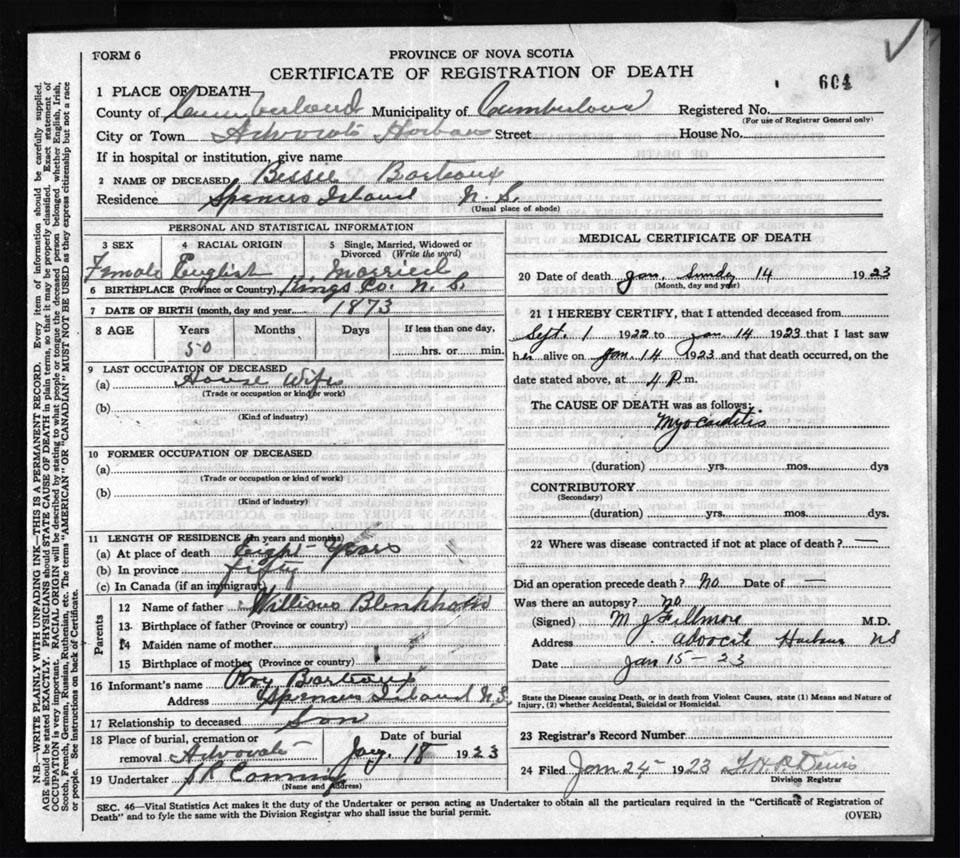 FORM 6
PROVINCE OF NOVA SCOTIA
CERTIFICATE OF REGISTRATION OF DEATH
604
1 PLACE OF DEATH
County of Cumberland Municipality of Cumberland Registered No.
(For use of Registrar General only)
City or Town Advocate Harbour Street House No.
If in hospital or institution, give name
2 NAME OF DECEASED Bessie Barteaux
Residence Spencers Island N. S.
(Usual place of abode)
PERSONAL AND STATISTICAL INFORMATION
3 SEX 4 RACIAL ORIGIN 5 Single, Married, Widowed or Divorced (Write the word)
Female English Married
6 BIRTHPLACE (Province or Country) Kings Co. N. S.
7 DATE OF BIRTH (month, day and year) 1873
8 AGE Years Months Days If less than one day,
50 hrs. or min.
9 LAST OCCUPATION OF DECEASED
(a) House Wife
(Trade or occupation or kind of work)
(b)
(Kind of industry)
10 FORMER OCCUPATION OF DECEASED
(a)
(Trade or occupation or kind of work)
(b)
(Kind of industry)
11 LENGTH OF RESIDENCE (In years and months)
(a) At place of death Eight Years
(b) In province Fifty
(c) In Canada (if an immigrant)
Parents
12 Name of father William Blenkhorn
13 Birthplace of father (Province or country)
14 Maiden name of mother
15 Birthplace of mother (Province or country)
16 Informant's name Roy Barteaux
Address Spencers Island N.S.
17 Relationship to deceased Son
18 Place of burial, cremation or removal Advocate Date of burial Jany. 18 1923
19 Undertaker
(Name and Address)
MEDICAL CERTIFICATE OF DEATH
20 Date of death Jan. Sunday 14 1923
(Month, day and year)
21 I HEREBY CERTIFY, that I attended deceased from
Sept. 1 1922 to Jan 14 1923 that I last saw
her alive on Jan. 14 1923 and that death occurred, on the
date stated above, at 4 P. m.
The CAUSE OF DEATH was as follows:
Myocarditis
(duration) yrs. mos. dys
CONTRIBUTORY
(Secondary)
(duration) yrs. mos. dys
22 Where was disease contracted if not at place of death? —
Did an operation precede death? No Date of —
Was there an autopsy? no
(Signed) M J Fillmore M.D.
Address Advocate Harbour NS
Date Jan 15 - 23
State the Disease causing Death, or in death from Violent Causes, state (1) Means and Nature of
Injury, (2) whether Accidental, Suicidal or Homicidal.
23 Registrar's Record Number
24 Filed Jan 24 1923
Division Registrar
SEC. 46—Vital Statistics Act makes it the duty of the Undertaker or person acting as Undertaker to obtain all the particulars required in the "Certificate of Registration of
Death" and to fyle the same with the Division Registrar who shall issue the burial permit.
(OVER)
N.B.—WRITE PLAINLY WITH UNFADING INK—THIS IS A PERMANENT RECORD. Every item of information should be carefully supplied.
AGE should be stated EXACTLY. PHYSICIANS should STATE CAUSE OF DEATH in plain terms, so that it may be properly classified. Exact statement of
OCCUPATION is very important. RACIAL ORIGIN will be described by stating to what people or tongue the deceased person belonged whether English, Irish,
Scotch, French, German, Russian, Ruthenian, etc. The terms "AMERICAN" OR "CANADIAN" MUST NOT BE USED as they express citizenship but not a race
or people. See instructions on back of Certificate.